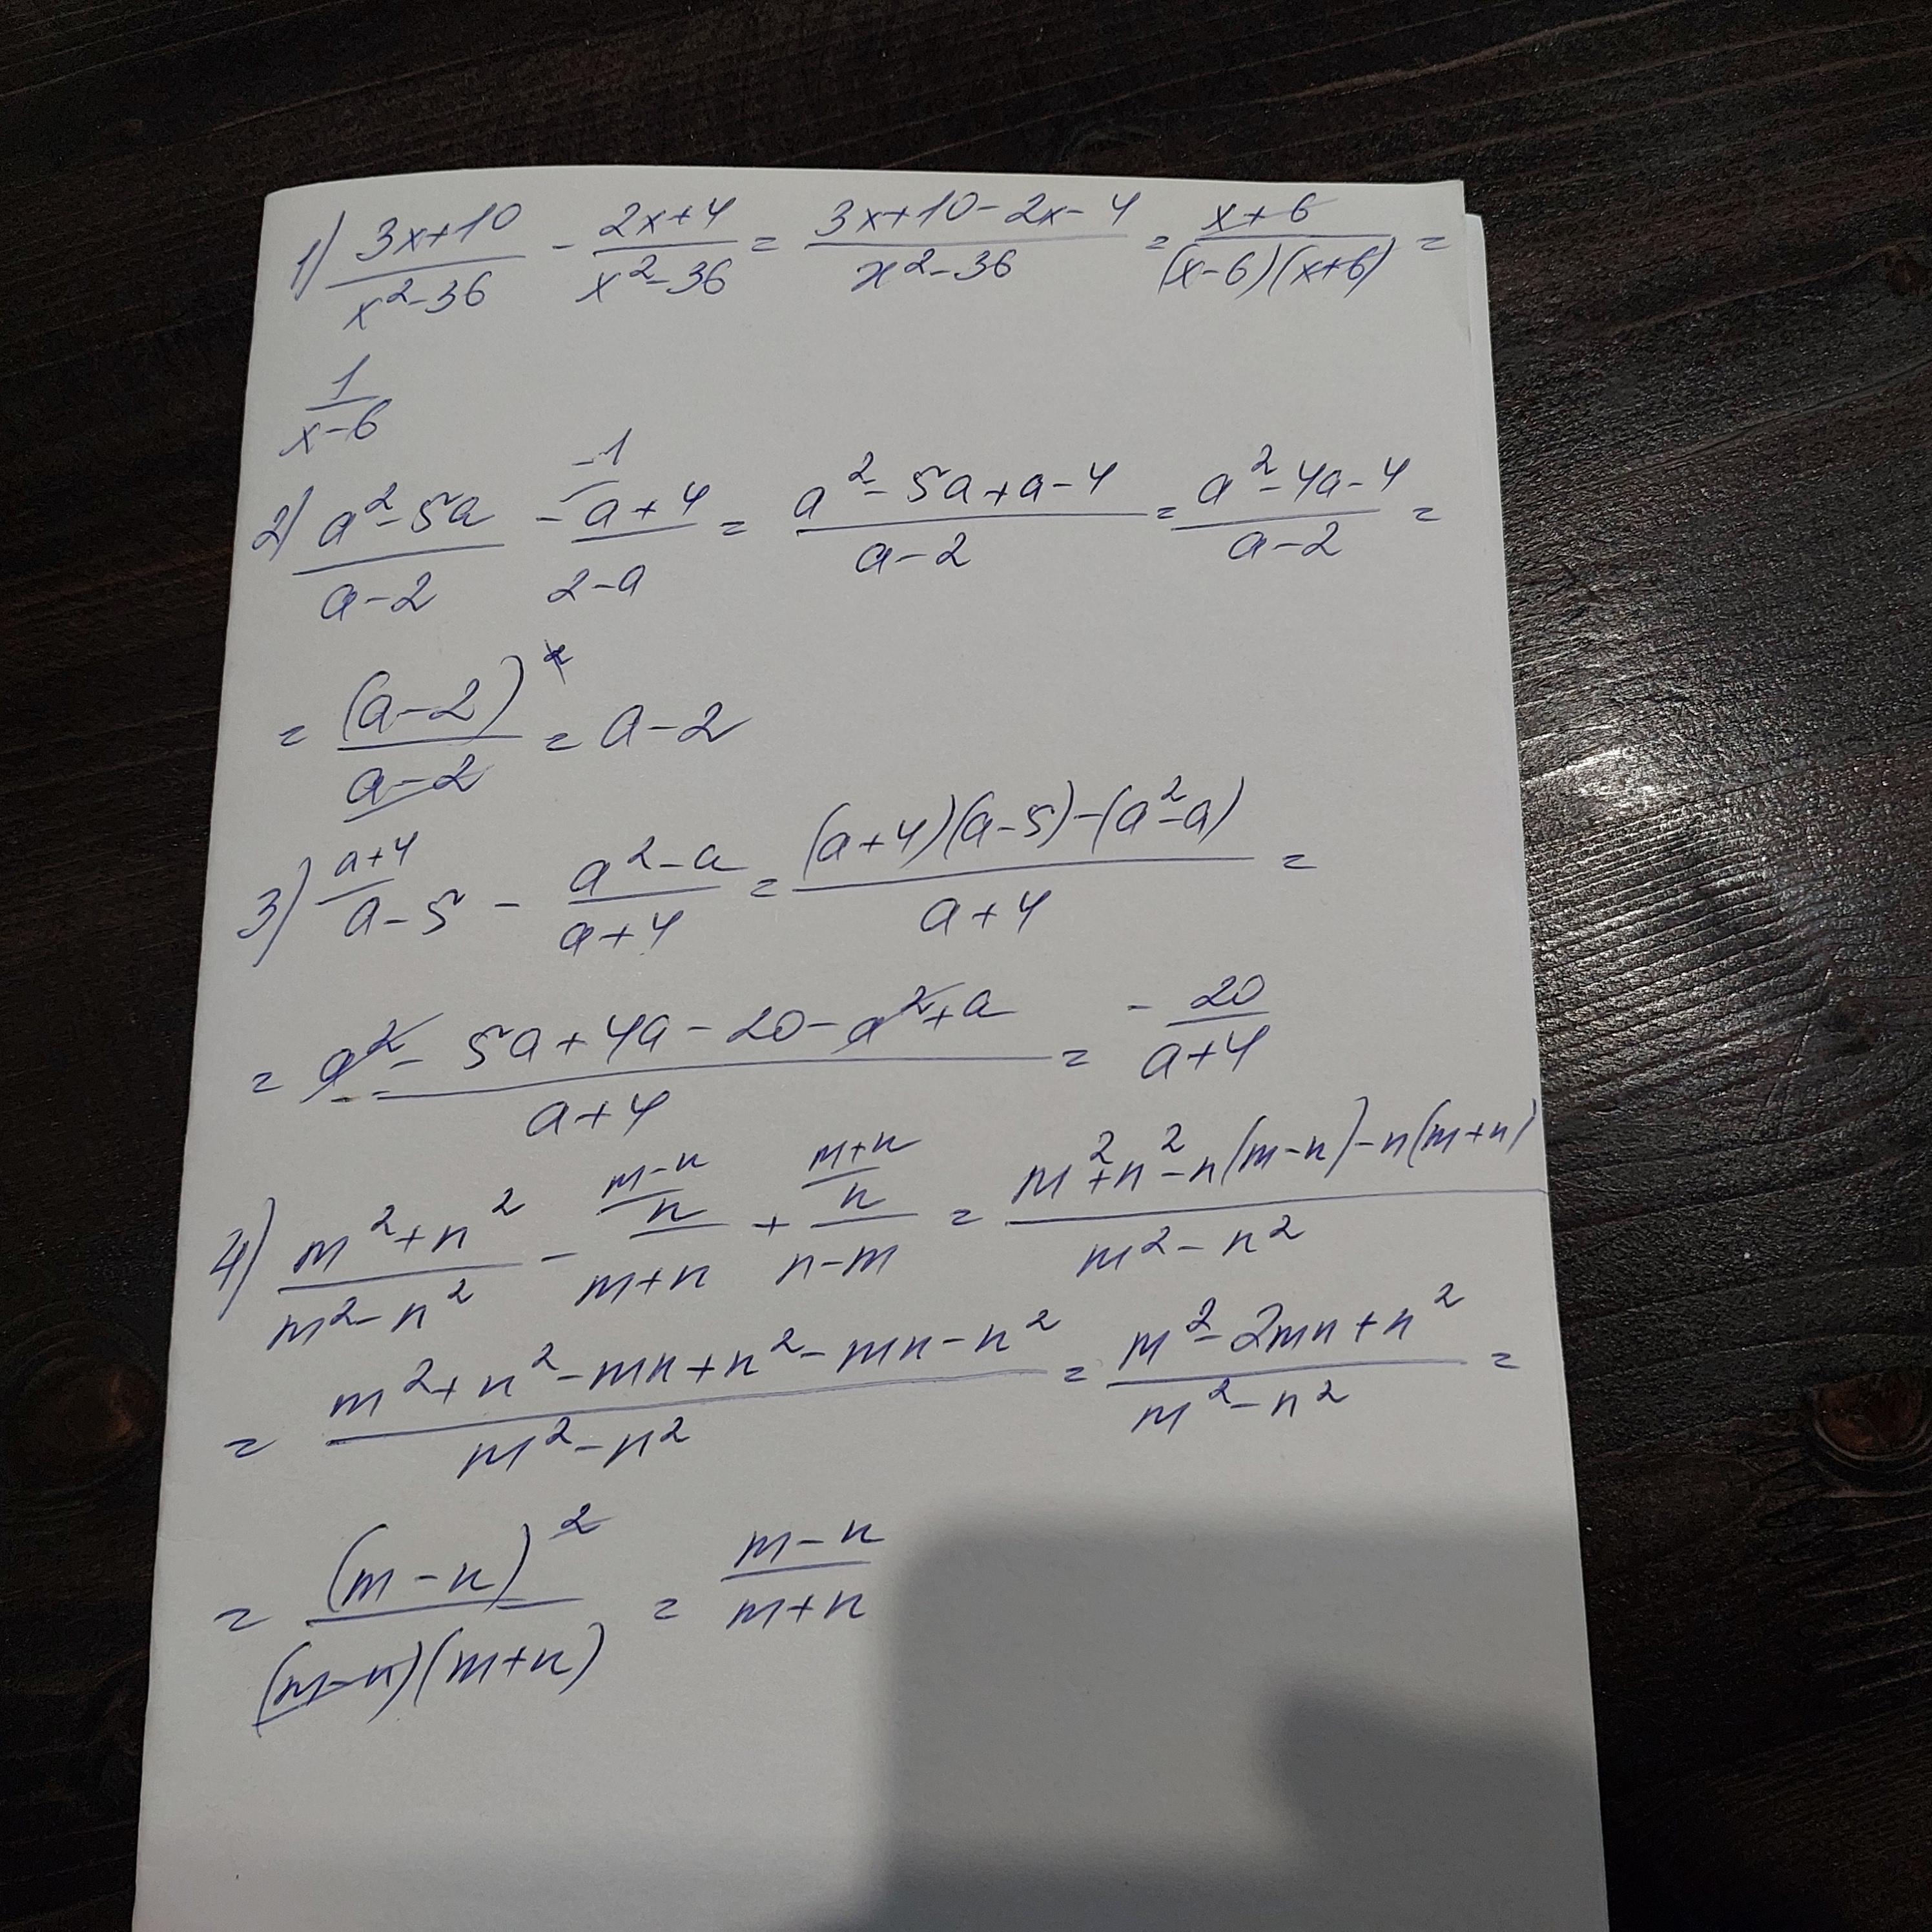 1) (3x+10)/(x²-36) - (2x+4)/(x²-36) = (3x+10-2x-4)/(x²-36) = (x+6)/((x-6)(x+6)) =
1/(x-6)
2) (a²-5a)/(a-2) - -1/(a+4)/(2-a) = (a²-5a+a-4)/(a-2) = (a²-4a-4)/(a-2) =
= (a-2)²/(a-2) = a-2
3) a+4/a-5 - (a²-a)/(a+4) = ((a+4)(a-5)-(a²-a))/(a+4) =
= (a²-5a+4a-20-a²+a)/(a+4) = - 20/(a+4)
4) (m²+n²)/(m²-n²) - m-n/n/(m+n) + m+n/n/(n-m) = (m²+n²-n(m-n)-n(m+n))/(m²-n²)
= (m²+n²-mn+n²-mn-n²)/(m²-n²) = (m²-2mn+n²)/(m²-n²) =
= (m-n)²/((m-n)(m+n)) = (m-n)/(m+n)